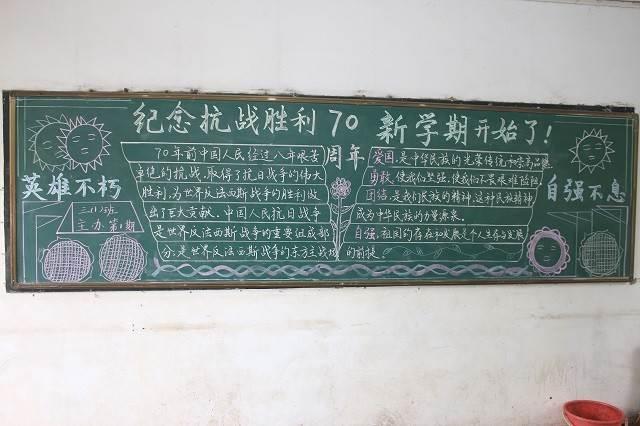 纪念抗战胜利70周年
新学期开始了!
英雄不朽
三(1)班
主办 第1期
70年前中国人民经过八年艰苦
卓绝的抗战,取得了抗日战争的伟大
胜利,为世界反法西斯战争的胜利做
出了巨大贡献。中国人民抗日战争
是世界反法西斯战争的重要组成部
分,是世界反法西斯战争的东方主战场
爱国,是中华民族的光荣传统和崇高品德
勇敢,使我们坚强,使我们不畏艰难险阻。
团结,是我们民族的精神,这种民族精神
成为中华民族的力量源泉。
自强,祖国的存在和发展是个人生存与发展
的前提。
自强不息